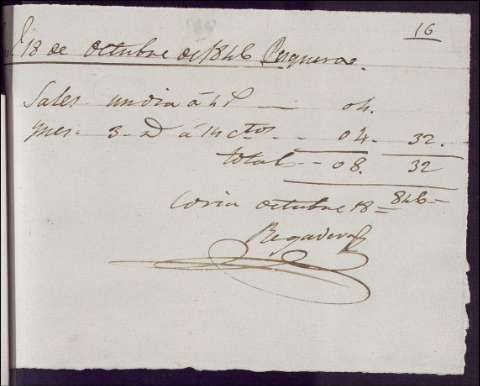 16
18 de Octubre de 1846 Pesqueras.
Sales un dia á 4 04.
3 á 14 ctos 04. 32.
total 08. 32
Coria octubre 18 = 846 =
Regadera